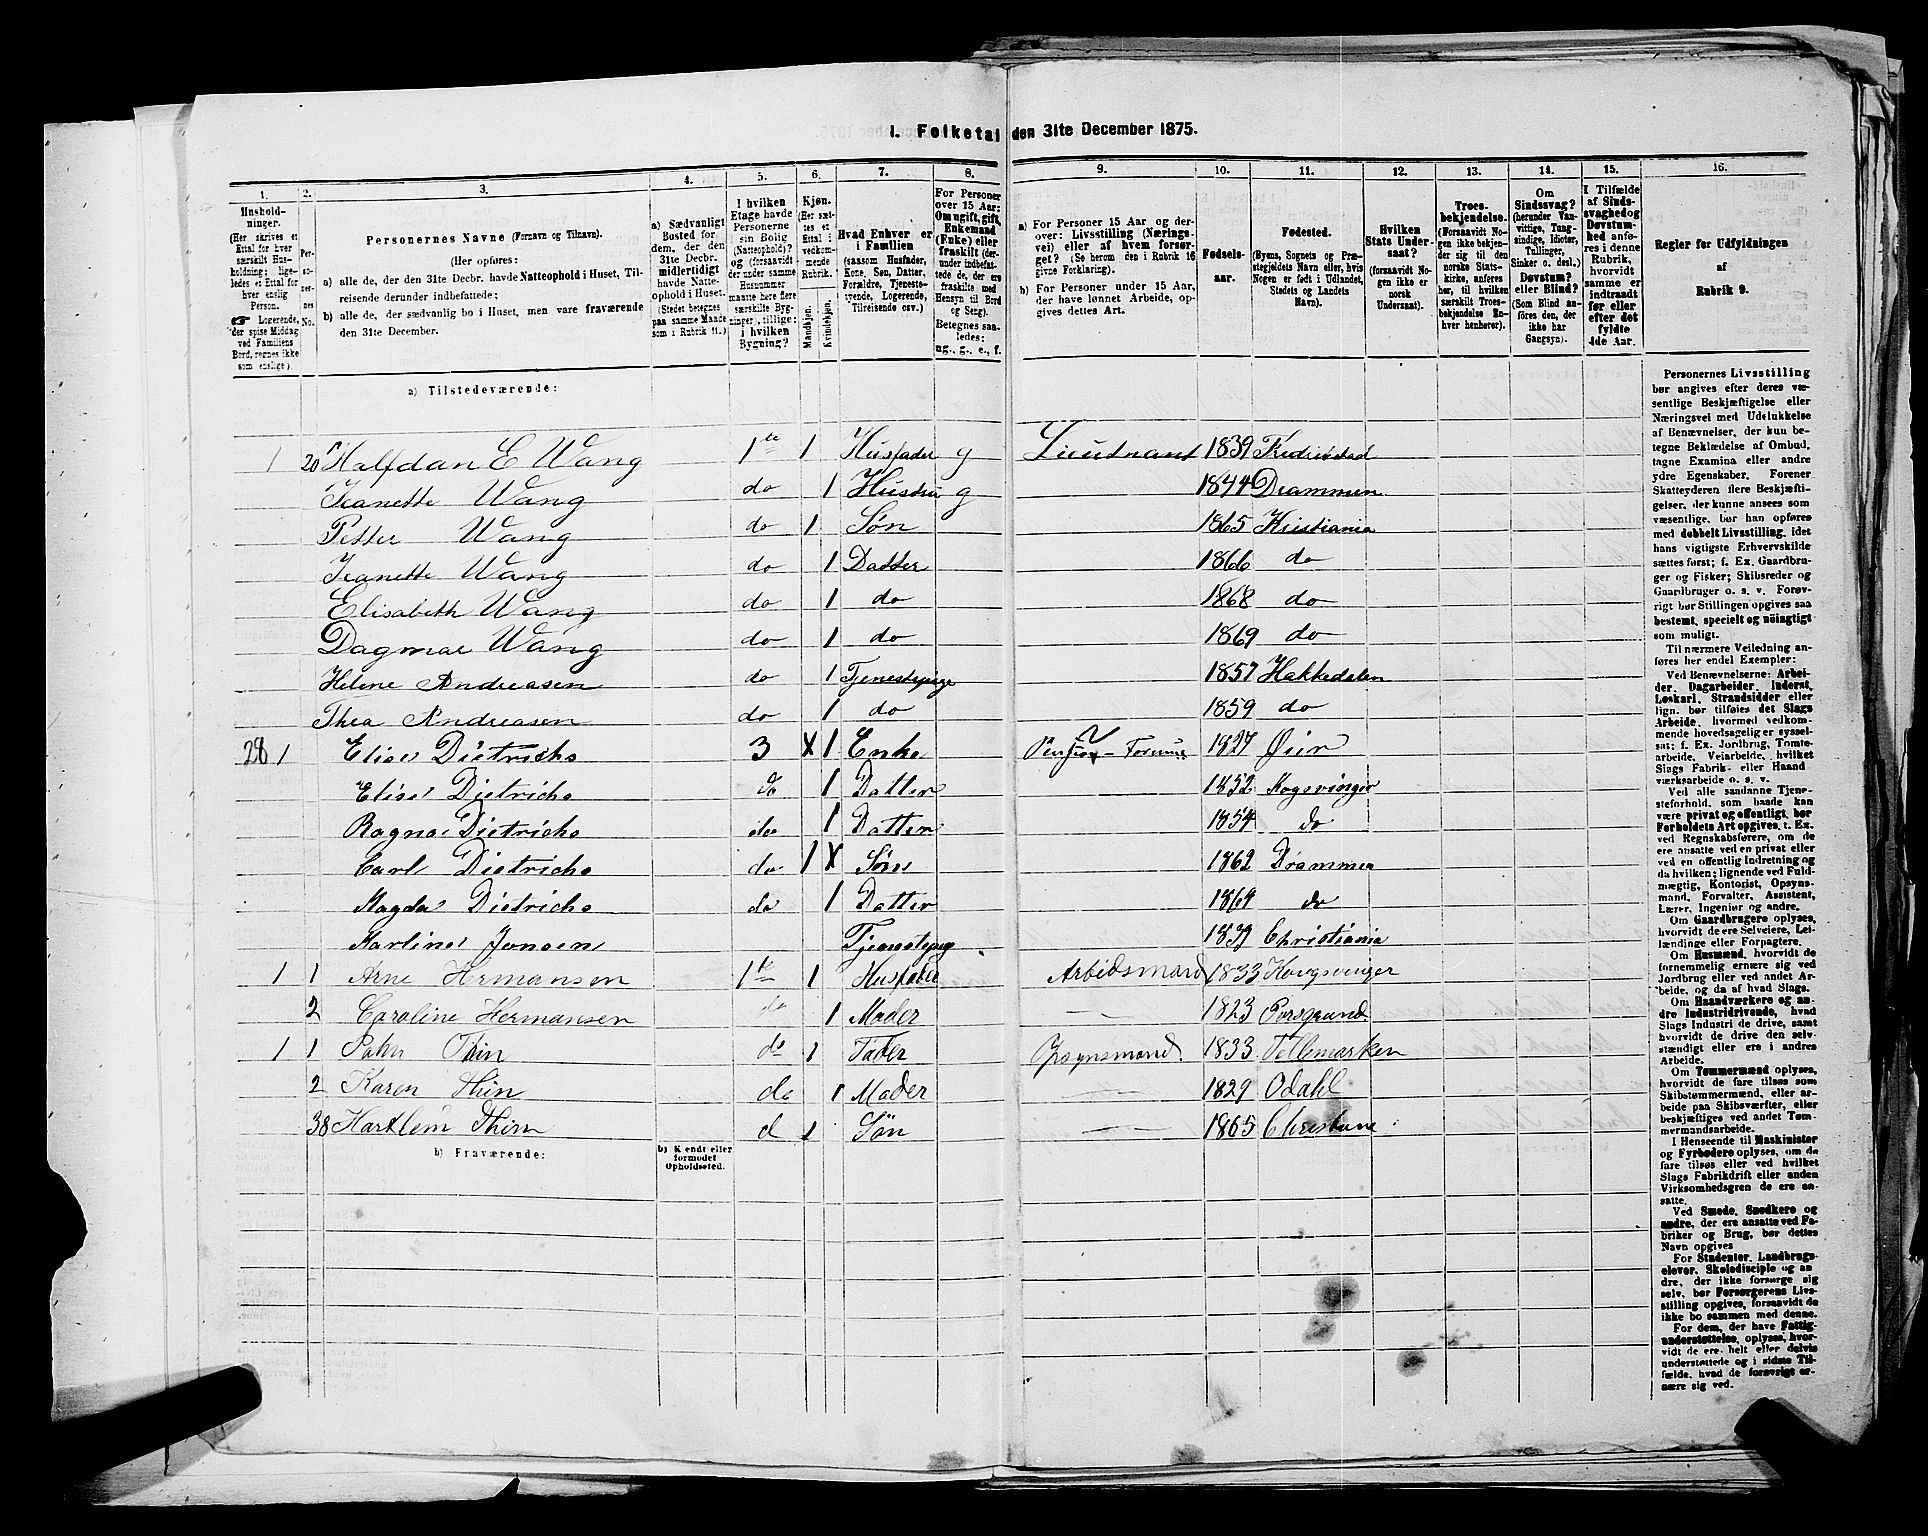 1. Folketal den 31te December 1875.
1. 2. 3. 4. 5. 6. 7. 8. 9. 10. 11. 12. 13. 14. 15. 16.
Husholdninger. (Her skrives et Ettal for hver særskilt Husholdning; ligeledes et Ettal for hver enslig Person. ☞ Logerende, der spise Middag ved Familiens Bord, regnes ikke som enslige).
Personernes No.
Personernes Navne (Fornavn og Tilnavn).
(Her opføres:
a) alle de, der den 31te Decbr. havde Natteophold i Huset, Tilreisende derunder indbefattede;
b) alle de, der sædvanlig bo i Huset, men vare fraværende den 31te December.
a) Sædvanligt Bosted for dem, der den 31te Decbr. midlertidigt havde Natteophold i Huset. (Stedet betegnes paa samme Maade som i Rubrik 11.)
I hvilken Etage havde Personerne sin Bolig (Natteophold)? og (forsaavidt der under samme Husnummer maatte høre flere særskilte Bygninger), tillige: i hvilken Bygning?
Kjøn. (Her sættes et Ettal i vedkommende Rubrik. Mandkjøn. Kvindekjøn.
Hvad Enhver er i Familien (saasom Husfader, Kone, Søn, Datter, Forældre, Tjenestetyende, Logerende, Tilreisende osv.)
For Personer over 15 Aar: Om ugift, gift, Enkemand (Enke) eller fraskilt (derunder indbefattede de, der ere fraskilte med Hensyn til Bord og Seng). Betegnes saaledes: ug., g., e., f.
a) For Personer 15 Aar og derover: Livsstilling (Næringsvei) eller af hvem forsørget? (Se herom den i Rubrik 16 givne Forklaring).
b) For Personer under 15 Aar, der have lønnet Arbeide, opgives dettes Art.
Fødselsaar.
Fødested. (Byens, Sognets og Præstegjeldets Navn eller, hvis Nogen er født i Udlandet, Stedets og Landets Navn).
Hvilken Stats Undersaat? (forsaavidt Nogen ikke er norsk Undersaat).
Troesbekjendelse. (Forsaavidt Nogen ikke bekjender sig til den norske Statskirke, anføres her, til hvilken særskilt Troesbekjendelse Enhver henhører).
Om Sindssvag? (herunder Vanvittige, Tungsindige, Idioter, Tullinger, Sinker o. desl.) Døvstum? eller Blind? (Som Blind anføres den, der ikke har Gangsyn).
I Tilfælde af Sindssvaghed og Døvstumhed anføres i denne Rubrik, hvorvidt samme er indtraadt før eller efter det fyldte 4de Aar.
Regler for Udfyldningen af Rubrik 9.
a) Tilstedeværende:
1 20 Halfdan E Wang 1te 1 Husfader g Lieutnant 1839 Fredrikstad
Jeanette Wang do 1 Hustru g 1844 Drammen
Petter Wang do 1 Søn 1865 Kristiania
Jeanette Wang do 1 Datter 1866 do
Elisabeth Wang do 1 do 1868 do
Dagmar Wang do 1 do 1869 do
Helene Andreasen do 1 Tjenestepige 1857 Hakkedalen
Thea Andreasen do 1 do 1859 do
28 1 Elise Dietrichs 3 X 1 Enke 1827 Øier
Elise Dietrichs do 1 Datter 1852 Kogsvinger
Ragna Dietrichs do 1 Datter 1854 do
Carl Dietrichs do 1 X Søn 1862 Drammen
Magda Dietrichs do 1 Datter 1864 do
Karline Jensen Tjenestepig 1839 Christiania
1 1 Arne Hermansen 1te 1 Husfader Arbeidsmand 1833 Kongsvinger
2 Caroline Hermansen do 1 Moder 1823 Porsgrund
1 1 Thin do 1 Fader Opsynsmand 1833 Tellemarken
2 Karen Thin do 1 Moder 1829 Odahl
38 Thin d 1 Søn 1865
b) Fraværende:
b) Kjendt eller formodet Opholdssted.
Personernes Livsstilling bør angives efter deres væsentlige Beskjæftigelse eller Næringsvei med Udelukkelse af Benævnelser, der kun betegne Beklædelse af Ombud, tagne Examina eller andre ydre Egenskaber. Forener Skatteyderen flere Beskjæftigelser, der kunne ansees som væsentlige, bør han opføres med dobbelt Livsstilling, idet hans vigtigste Erhvervskilde sættes først; f. Ex. Gaardbruger og Fisker; Skibsreder og Gaardbruger o. s. v. Forøvrigt bør Stillingen opgives saa bestemt, specielt og nöiagtigt som muligt.
Til nærmere Veiledning anføres her endel Exempler:
Ved Benævnelserne: Arbeider, Dagarbeider, Inderst, Løskarl, Strandsidder eller lign. bør tilføies det Slags Arbeide, hvormed vedkommende hovedsagelig er sysselsat; f. Ex. Jordbrug, Tomtearbeide, Veiarbeide, hvilket Slags Fabrik- eller Haandværksarbeide o. s. v.
Ved alle saadanne Tjenesteforhold, som baade kan være privat og offentligt, bør Forholdets Art opgives, t. Ex. ved Regnskabsførere, om de ere ansatte ved en privat eller ved en offentlig Indretning og da hvilken; lignende ved Fuldmægtig, Kontorist, Opsynsmand, Forvalter, Assistent, Lærer, Ingeniør og andre.
Om Gaardbrugere oplyses, hvorvidt de ere Selveiere, Leilændinge eller Forpagtere.
Om Husmænd, hvorvidt de fornemmelig ernære sig ved Jordbrug eller ved andet Arbeide, og da af hvad Slags.
Om Haandværkere og andre Industridrivende, hvad Slags Industri de drive, samt hvorvidt de drive den selvstændigt eller ere i andres Arbeide.
Om Tømmermænd oplyses, hvorvidt de fare tilsøs som Skibstømmermænd, eller arbeide paa Skibsværfter, eller beskjæftiges ved andet Tømmermandsarbeide.
I Henseende til Maskinister og Fyrbødere oplyses, om de fare tilsøs eller ved hvilket Slags Fabrikdrift eller anden Virksomhedsgren de ere ansatte.
Ved Smede, Snedkere og andre, der ere ansatte ved Fabriker og Brug, bør dettes Navn opgives
For Studenter, Landbrugselever, Skoledisciple og andre, der ikke forsørge sig selv, bør Forsørgerens Livsstilling opgives, forsaavidt de ikke bo sammen med denne.
For dem, der have Fattigunderstøttelse, oplyses, hvorvidt de ere helt eller delvis understøttede og i sidste Tilfælde, hvad de forøvrigt ernære sig ved.